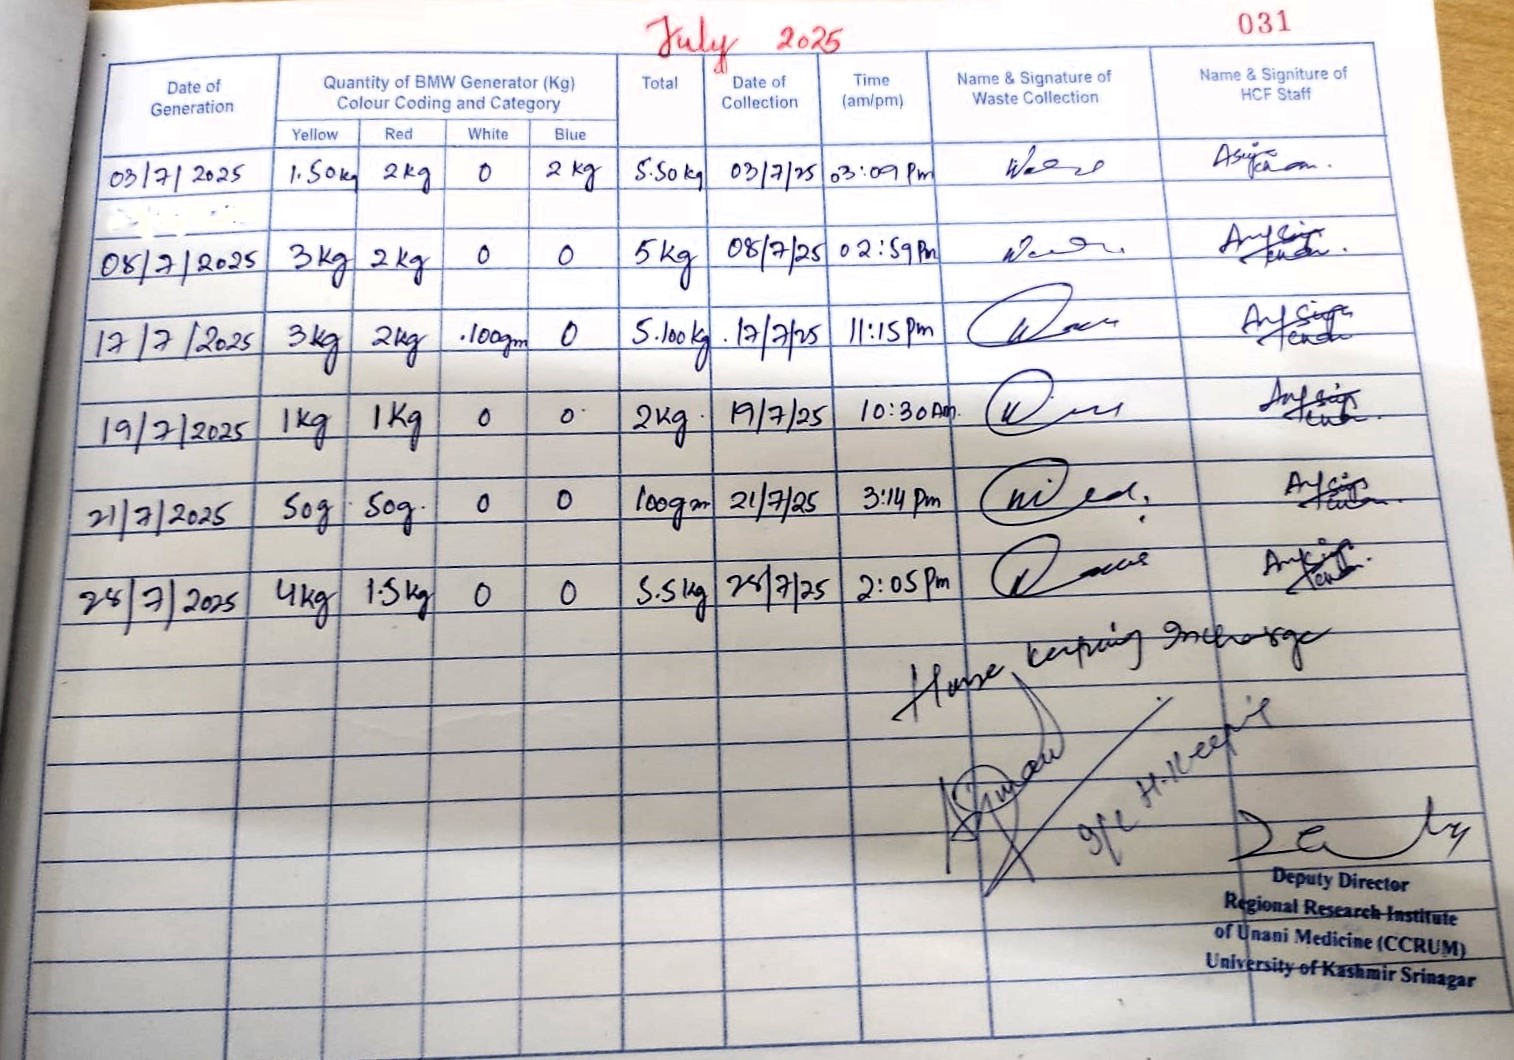 July 2025
031
Date of Generation Quantity of BMW Generator (Kg) Colour Coding and Category Total Date of Collection Time (am/pm) Name & Signature of Waste Collection Name & Signiture of HCF Staff
Yellow Red White Blue
03/7/2025 1.50kg 2kg 0 2 kg 5.50kg 03/7/25 03:09 Pm
08/7/2025 3kg 2kg 0 0 5kg 08/7/25 02:59 Pm
17/7/2025 3kg 2kg .100gm 0 5.100kg. 17/7/25 11:15 Pm
19/7/2025 1kg 1Kg 0 0 2kg. 19/7/25 10:30 Am.
21/7/2025 50g 50g. 0 0 100gm 21/7/25 3:14 Pm
28/7/2025 4kg 1.5kg 0 0 5.5kg 28/7/25 2:05 Pm
House keeping Incharge
I/c H.Keepi
Deputy Director
Regional Research Institute
of Unani Medicine (CCRUM)
University of Kashmir Srinagar